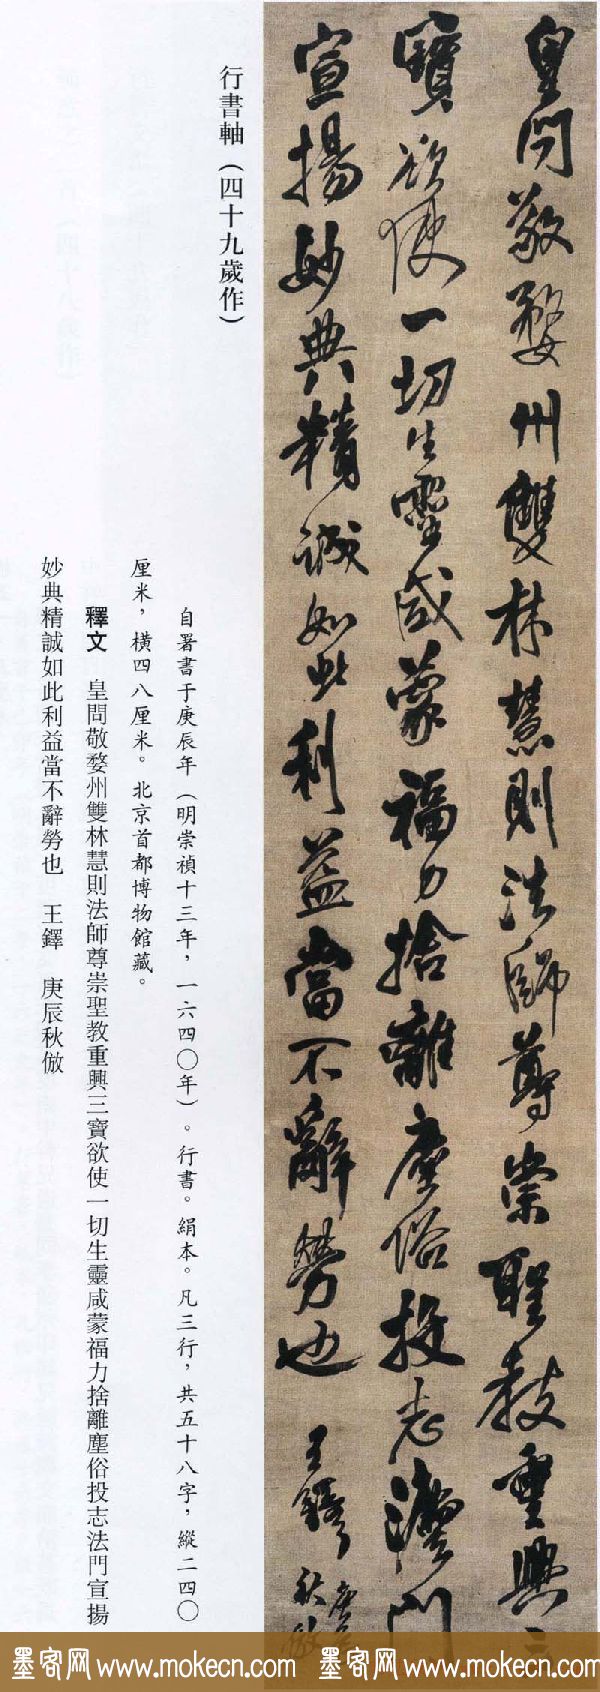 皇問敬婺州雙林慧則法師尊崇聖教重興三
寶欲使一切生靈咸蒙福力捨離塵俗投志灋門
宣揚妙典精誠如此利益當不辭勞也 王鐸 庚辰
秋倣
行書軸（四十九歲作）
自署書于庚辰年（明崇禎十三年，一六四〇年）。行書。絹本。凡三行，共五十八字，縱二四〇
厘米，橫四八厘米。北京首都博物館藏。
釋文 皇問敬婺州雙林慧則法師尊崇聖教重興三寶欲使一切生靈咸蒙福力捨離塵俗投志法門宣揚
妙典精誠如此利益當不辭勞也 王鐸 庚辰秋倣
墨客网 www.mokecn.com 墨客网 www.mokecn.com